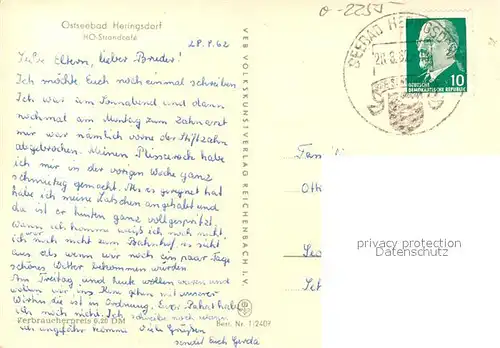 Ostseebad Heringsdorf
HO-Strandcafé
28.8.62
Liebe Eltern, lieber Bruder!
Ich möchte Euch noch einmal schreiben
Ich war am Sonnabend und dann
nochmal am Montag zum Zahnarzt
mir war nämlich vorne der Stiftzahn
abgebrochen. Meinen Plisseerock habe
ich mir in der vorigen Woche ganz
schmutzig gemacht. Als es geregnet hat
habe ich meine Latschen angehabt und
da ist er hinten ganz vollgespritzt.
Wann ich komme weiß ich noch nicht
ich muß mit zum Bahnhof. es sieht
aus als wenn wir noch ein paar Tage
schönes Wetter bekommen würden
Am Freitag und heute wollen
wollen wir ins Kino gehen mit unserer
Wirtin die ist in Ordnung. Euer Paket habe
ich noch nicht. Ich schreibe noch wann
ich ungefähr komme Viele Grüße
sendet Euch Gerda
Verbraucherpreis 0,20 DM
Best. Nr. 1/2409
VEB VOLKSKUNSTVERLAG REICHENBACH I. V.
0-2255
SEEBAD HERINGSDORF
28.8.62
10
DEUTSCHE
DEMOKRATISCHE REPUBLIK
Famili
Ott
privacy protection
watermark